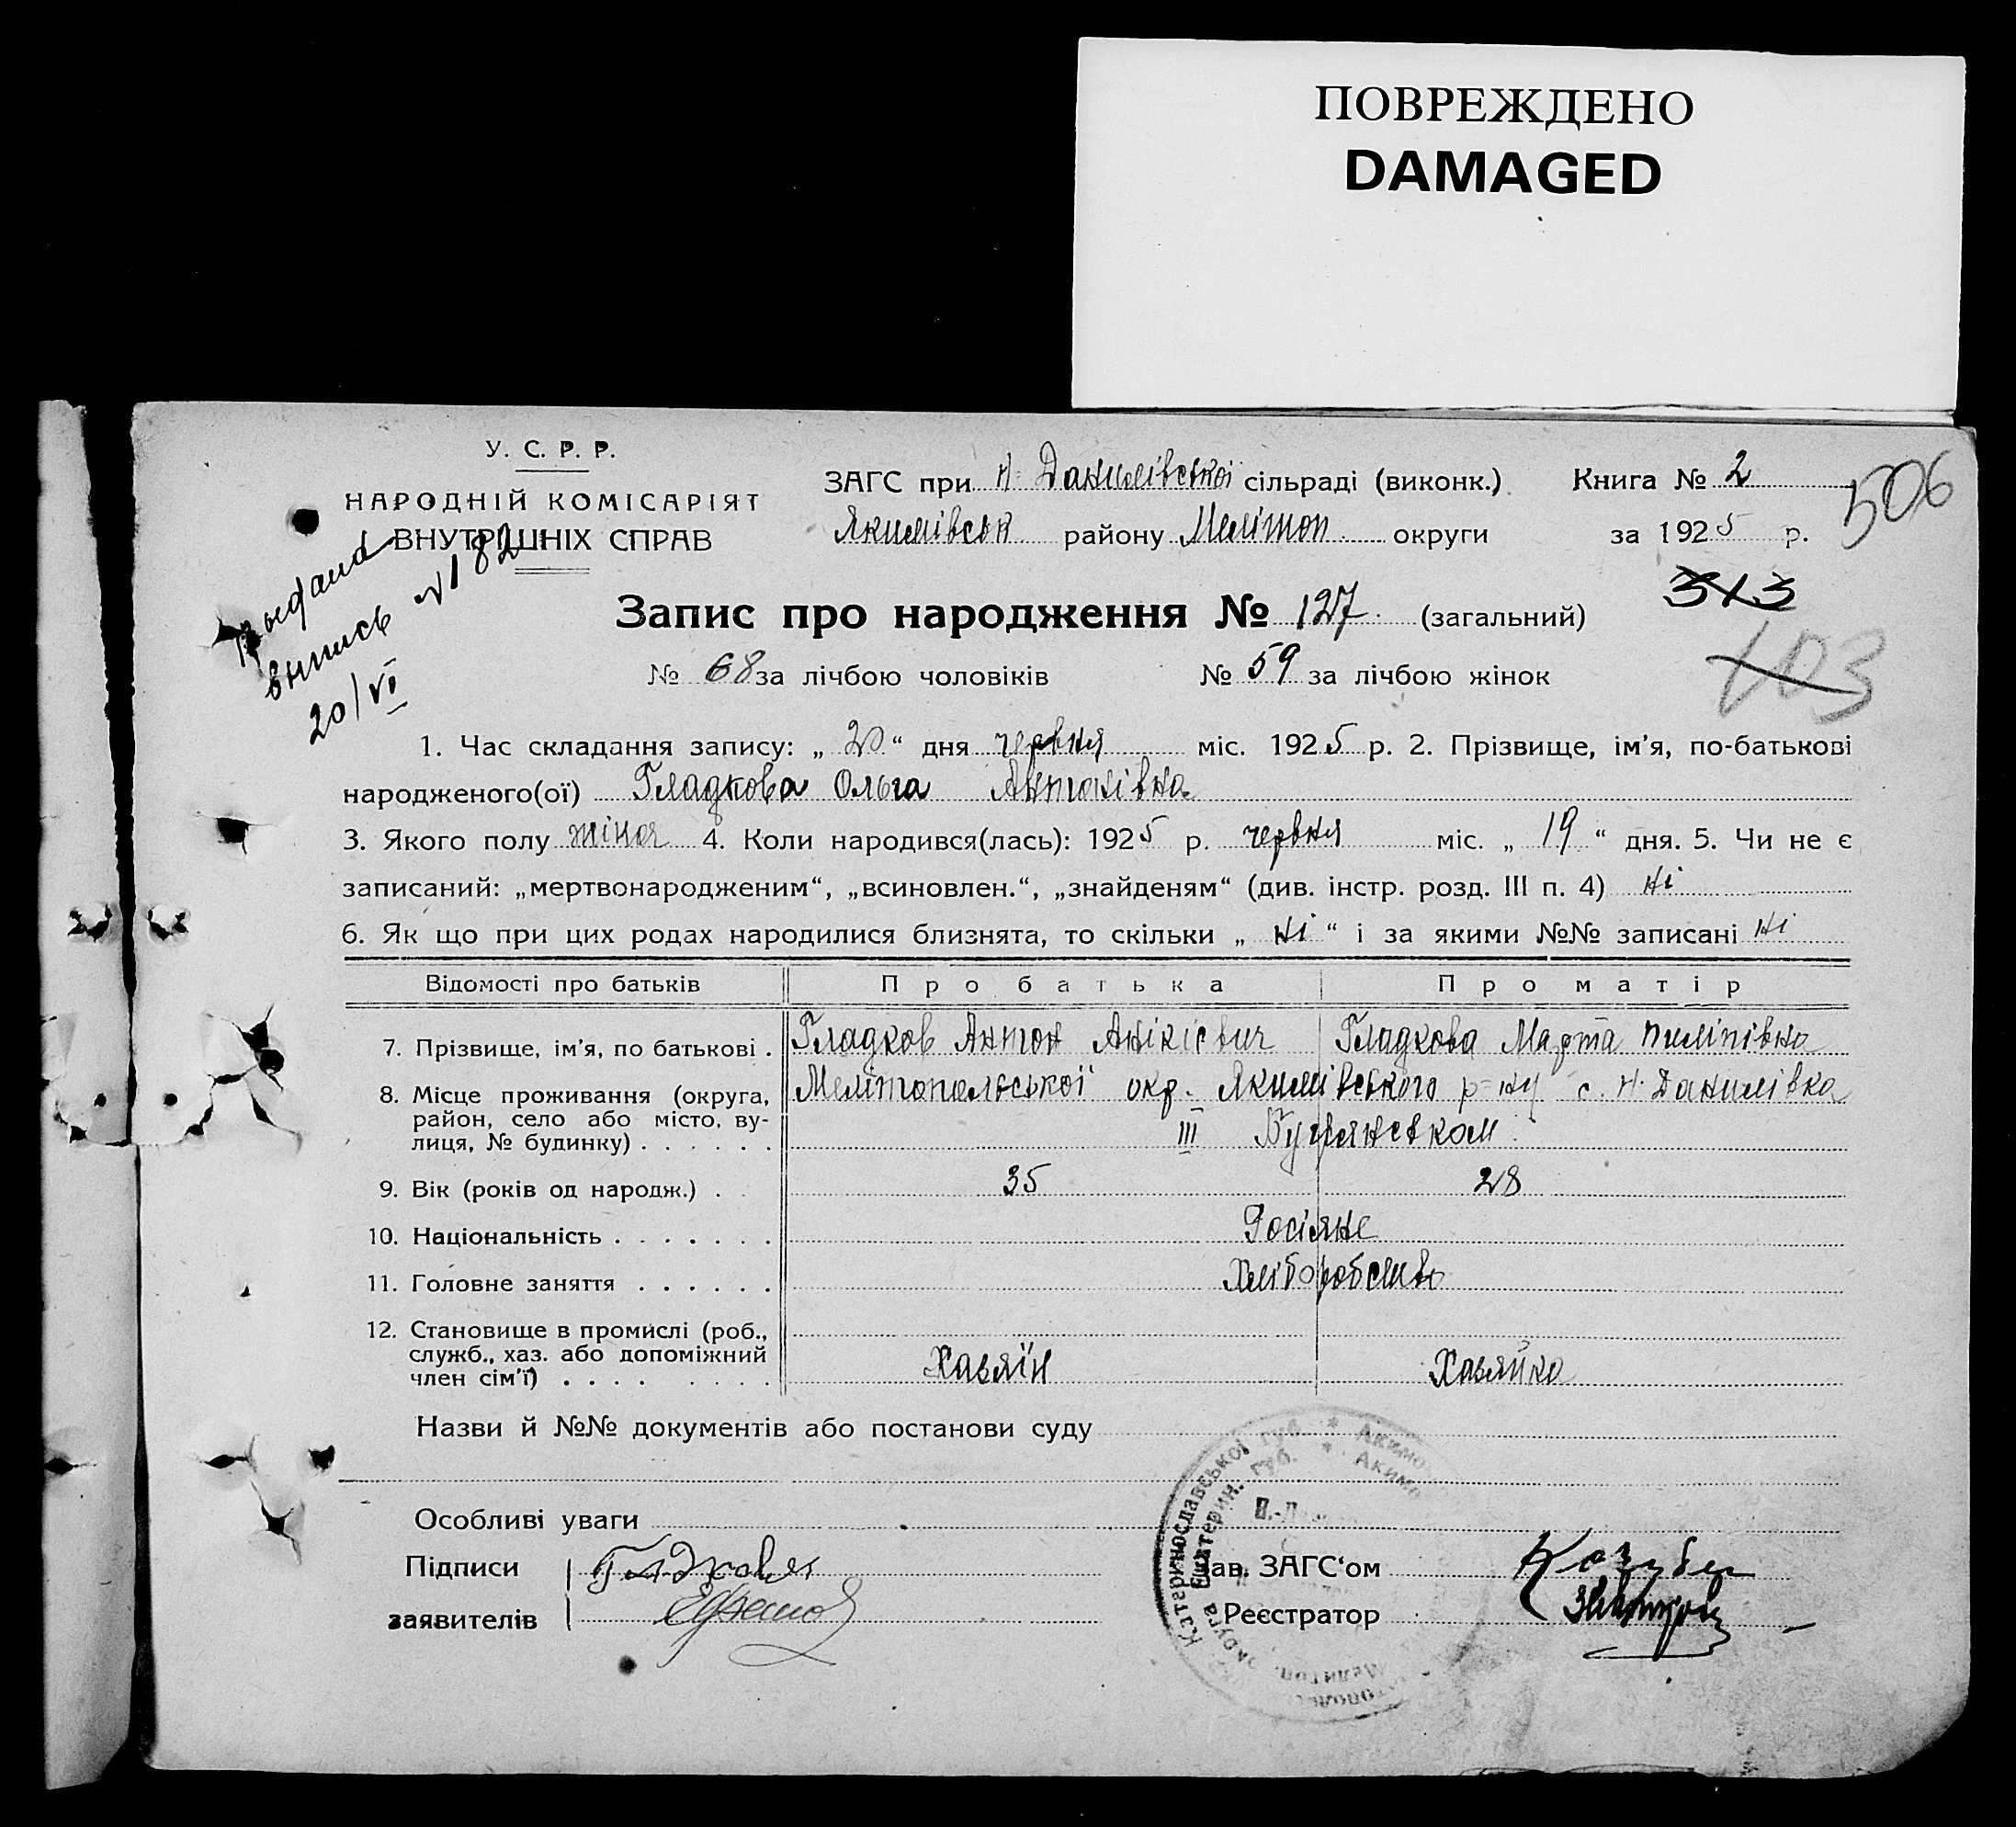 ПОВРЕЖДЕНО
DAMAGED
У. С. Р. Р.
НАРОДНІЙ КОМІСАРІЯТ
ВНУТРІШНІХ СПРАВ
ЗАГС при Н-Данилівській сільраді (виконк.)
Книга № 2
506
Якимівськ району Мелітоп. округи
за 1925 р.
выдана
выпись № 182
20/VI
Запис про народження № 127 (загальний)
313
103
№ 68 за лічбою чоловіків № 59 за лічбою жінок
1. Час складання запису: „ 20 “ дня червня міс. 1925 р. 2. Прізвище, ім’я, по-батькові
народженого(ої) Гладкова Ольга Антонівна
3. Якого полу жіноч 4. Коли народився(лась): 1925 р. червня міс. „ 19 “ дня. 5. Чи не є
записаний: „мертвонародженим“, „всиновлен.“, „знайденям“ (див. інстр. розд. III п. 4) ні
6. Як що при цих родах народилися близнята, то скільки „ ні “ і за якими №№ записані ні
Відомості про батьків Про батька Про матір
7. Прізвище, ім’я, по батькові . Гладков Антон Анікієвич Гладкова Марта Пиліпівна
8. Місце проживання (округа, район, село або місто, вулиця, № будинку) . . . . . . Мелітопольської окр. Якимівського р-ну с. Н. Данилівка
III
9. Вік (років од народж.) . 35 28
10. Національність . . . . . . . Росіяне
11. Головне заняття . . . . . . Хліборобство
12. Становище в промислі (роб.,
служб., хаз. або допоміжний
член сім’ї) . . . . . . . . Хазяїн Хазяйка
Назви й №№ документів або постанови суду
Особливі уваги
Підписи Гладковъ
заявителів
Зав. ЗАГС‘ом
Реєстратор
Катеринославської губ. * Акимо
Екатерин. губ. * Акимо